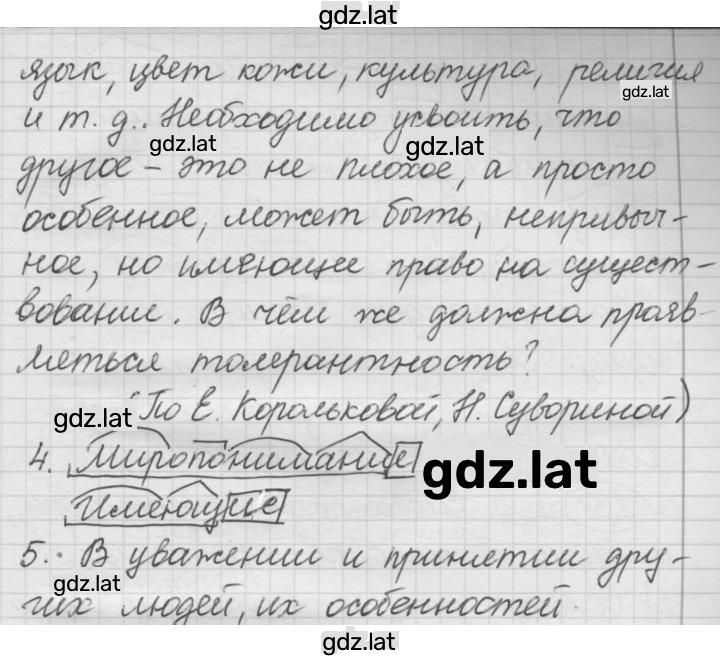 gdz.lat
язык, цвет кожи, культура, религия
gdz.lat
и т. д.. Необходимо усвоить, что
gdz.lat
gdz.lat
другое – это не плохое, а просто
особенное, может быть, непривыч-
ное, но имеющее право на сущест-
вование. В чём же должна прояв-
ляться толерантность?
(По Е. Корольковой, Н. Суворовой)
gdz.lat
4. Миропонимание
gdz.lat
Имеющие
5. В уважении и принятии дру-
gdz.lat
гих людей, их особенностей.
gdz.lat